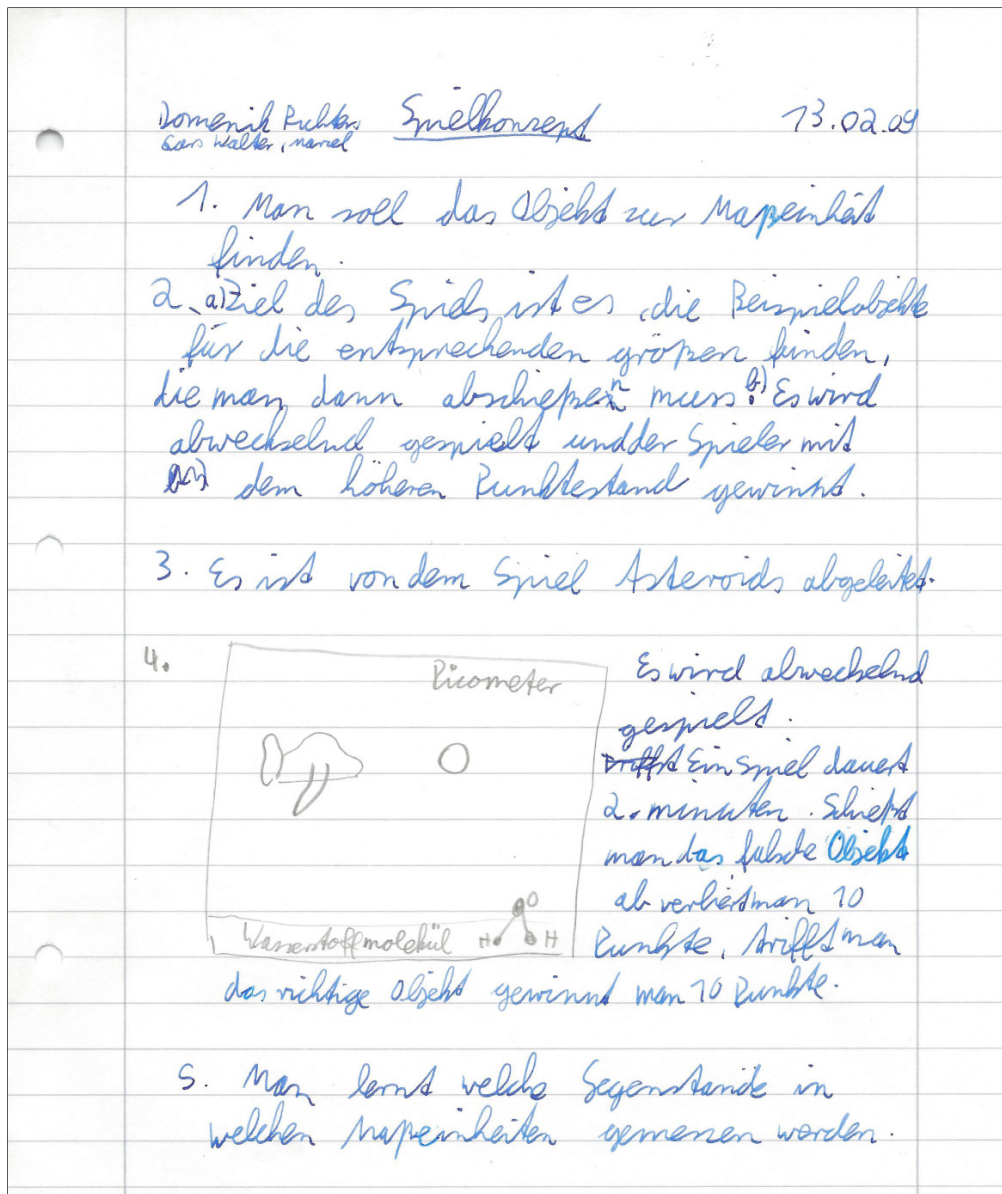 Domenik Richter, Spielkonzept 13.02.09
Lars Walter, Marcel
1. Man soll das Objekt zur Maßeinheit
finden.
2. a) Ziel des Spiels ist es, die Beispielobjekte
für die entsprechenden größen finden,
die man dann abschießen muss. b) Es wird
abwechselnd gespielt und der Spieler mit
dem höheren Punktestand gewinnt.
3. Es ist von dem Spiel Asteroids abgeleitet.
4.
Picometer
Wasserstoffmolekül H O H
Es wird abwechselnd
gespielt.
Ein Spiel dauert
2. minuten. Schießt
man das falsche Objekt
ab verliert man 10
Punkte, trifft man
das richtige Objekt gewinnt man 10 Punkte.
5. Man lernt welche Gegenstände in
welchen Maßeinheiten gemessen werden.